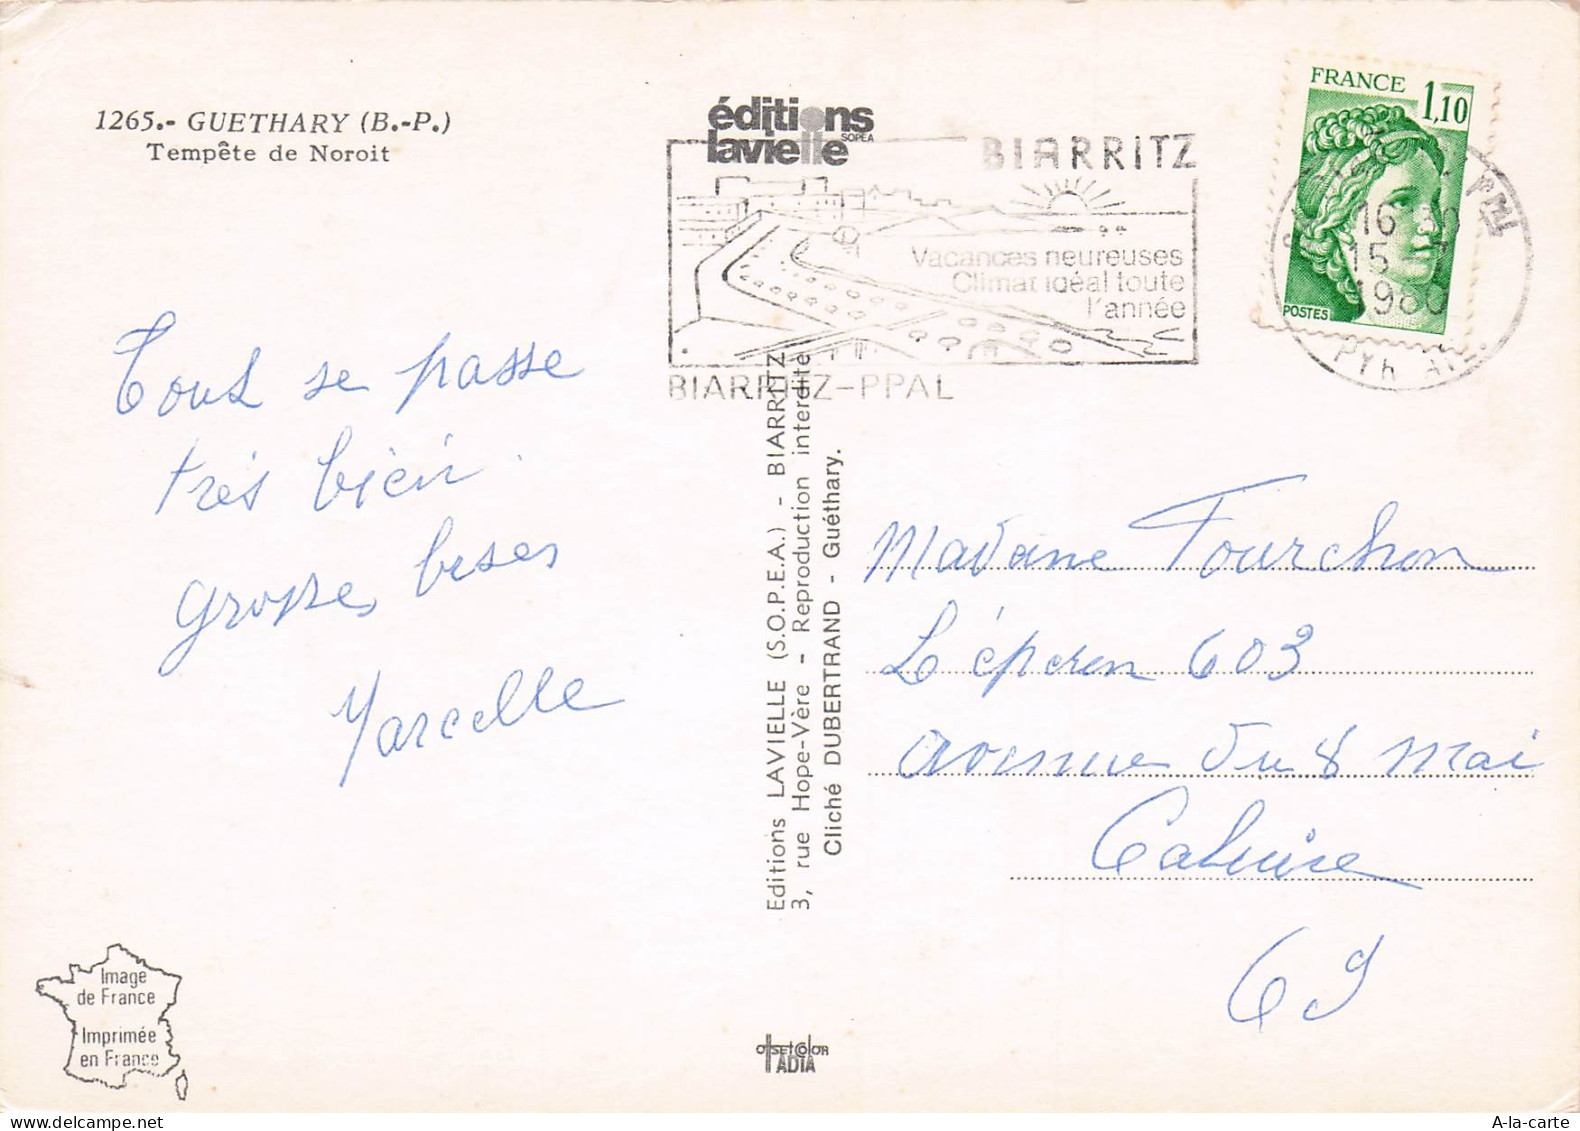 1265.- GUETHARY (B.-P.)
Tempête de Noroit
éditions
lavielle
SOPEA
BIARRITZ
Vacances heureuses
Climat idéal toute
l'année
BIARRITZ-PPAL
FRANCE 1,10
POSTES
16
15 7
1980
PYR ATL.
Tout se passe
très bien.
grosses bises
Marcelle
Editions LAVIELLE (S.O.P.E.A.) - BIARRITZ
3, rue Hope-Vère - Reproduction interdite
Cliché DUBERTRAND - Guéthary.
Madame Fourchon
L'éperon 603
avenue du 8 mai
Caluire
69
Image
de France
Imprimée
en France
OFFSET COLOR
TADIA
A-la-carte